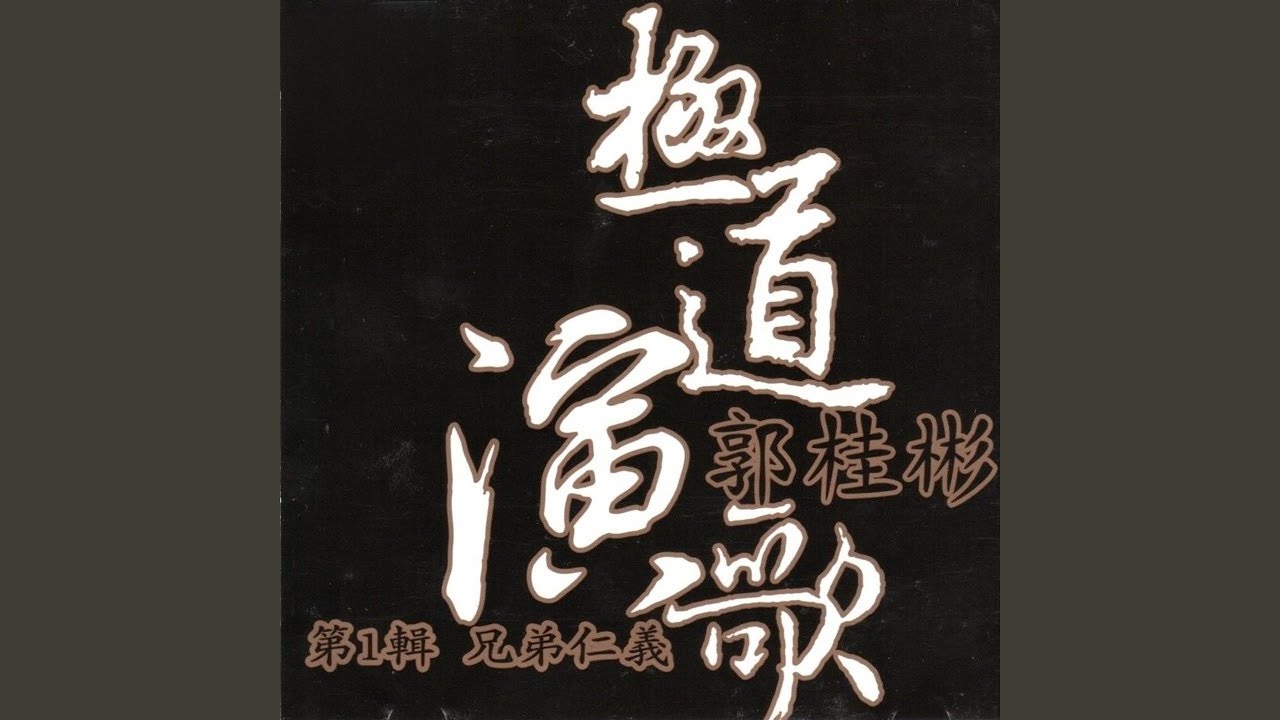 極道
演歌
郭桂彬
第1輯 兄弟仁義